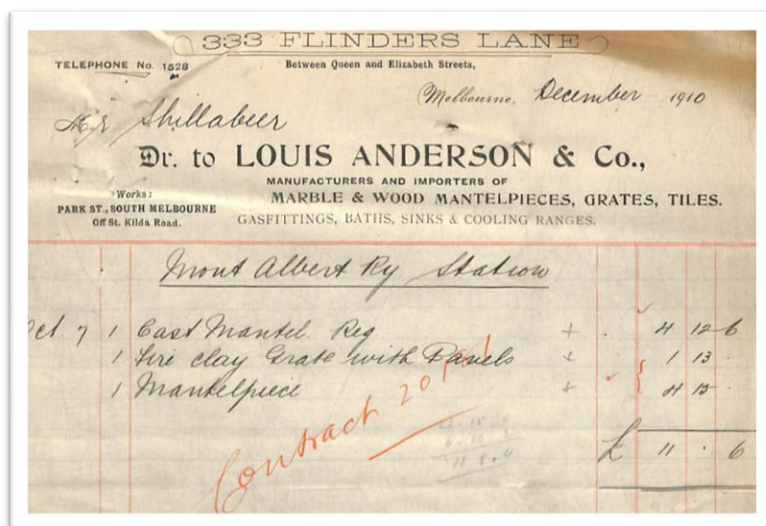 333 FLINDERS LANE
TELEPHONE No. 1528
Between Queen and Elizabeth Streets,
Melbourne, December 1910
Mr Shillabeer
Dr. to LOUIS ANDERSON & Co.,
MANUFACTURERS AND IMPORTERS OF
MARBLE & WOOD MANTELPIECES, GRATES, TILES.
GASFITTINGS, BATHS, SINKS & COOLING RANGES.
Works:
PARK ST., SOUTH MELBOURNE
Off St. Kilda Road.
Mont Albert Ry Station
Oct 7 1 Cast Mantel Reg + 4 12 6
1 Fire clay Grate with Panels + 1 13
1 Mantelpiece + 4 15
Contract
£ 11 . 6